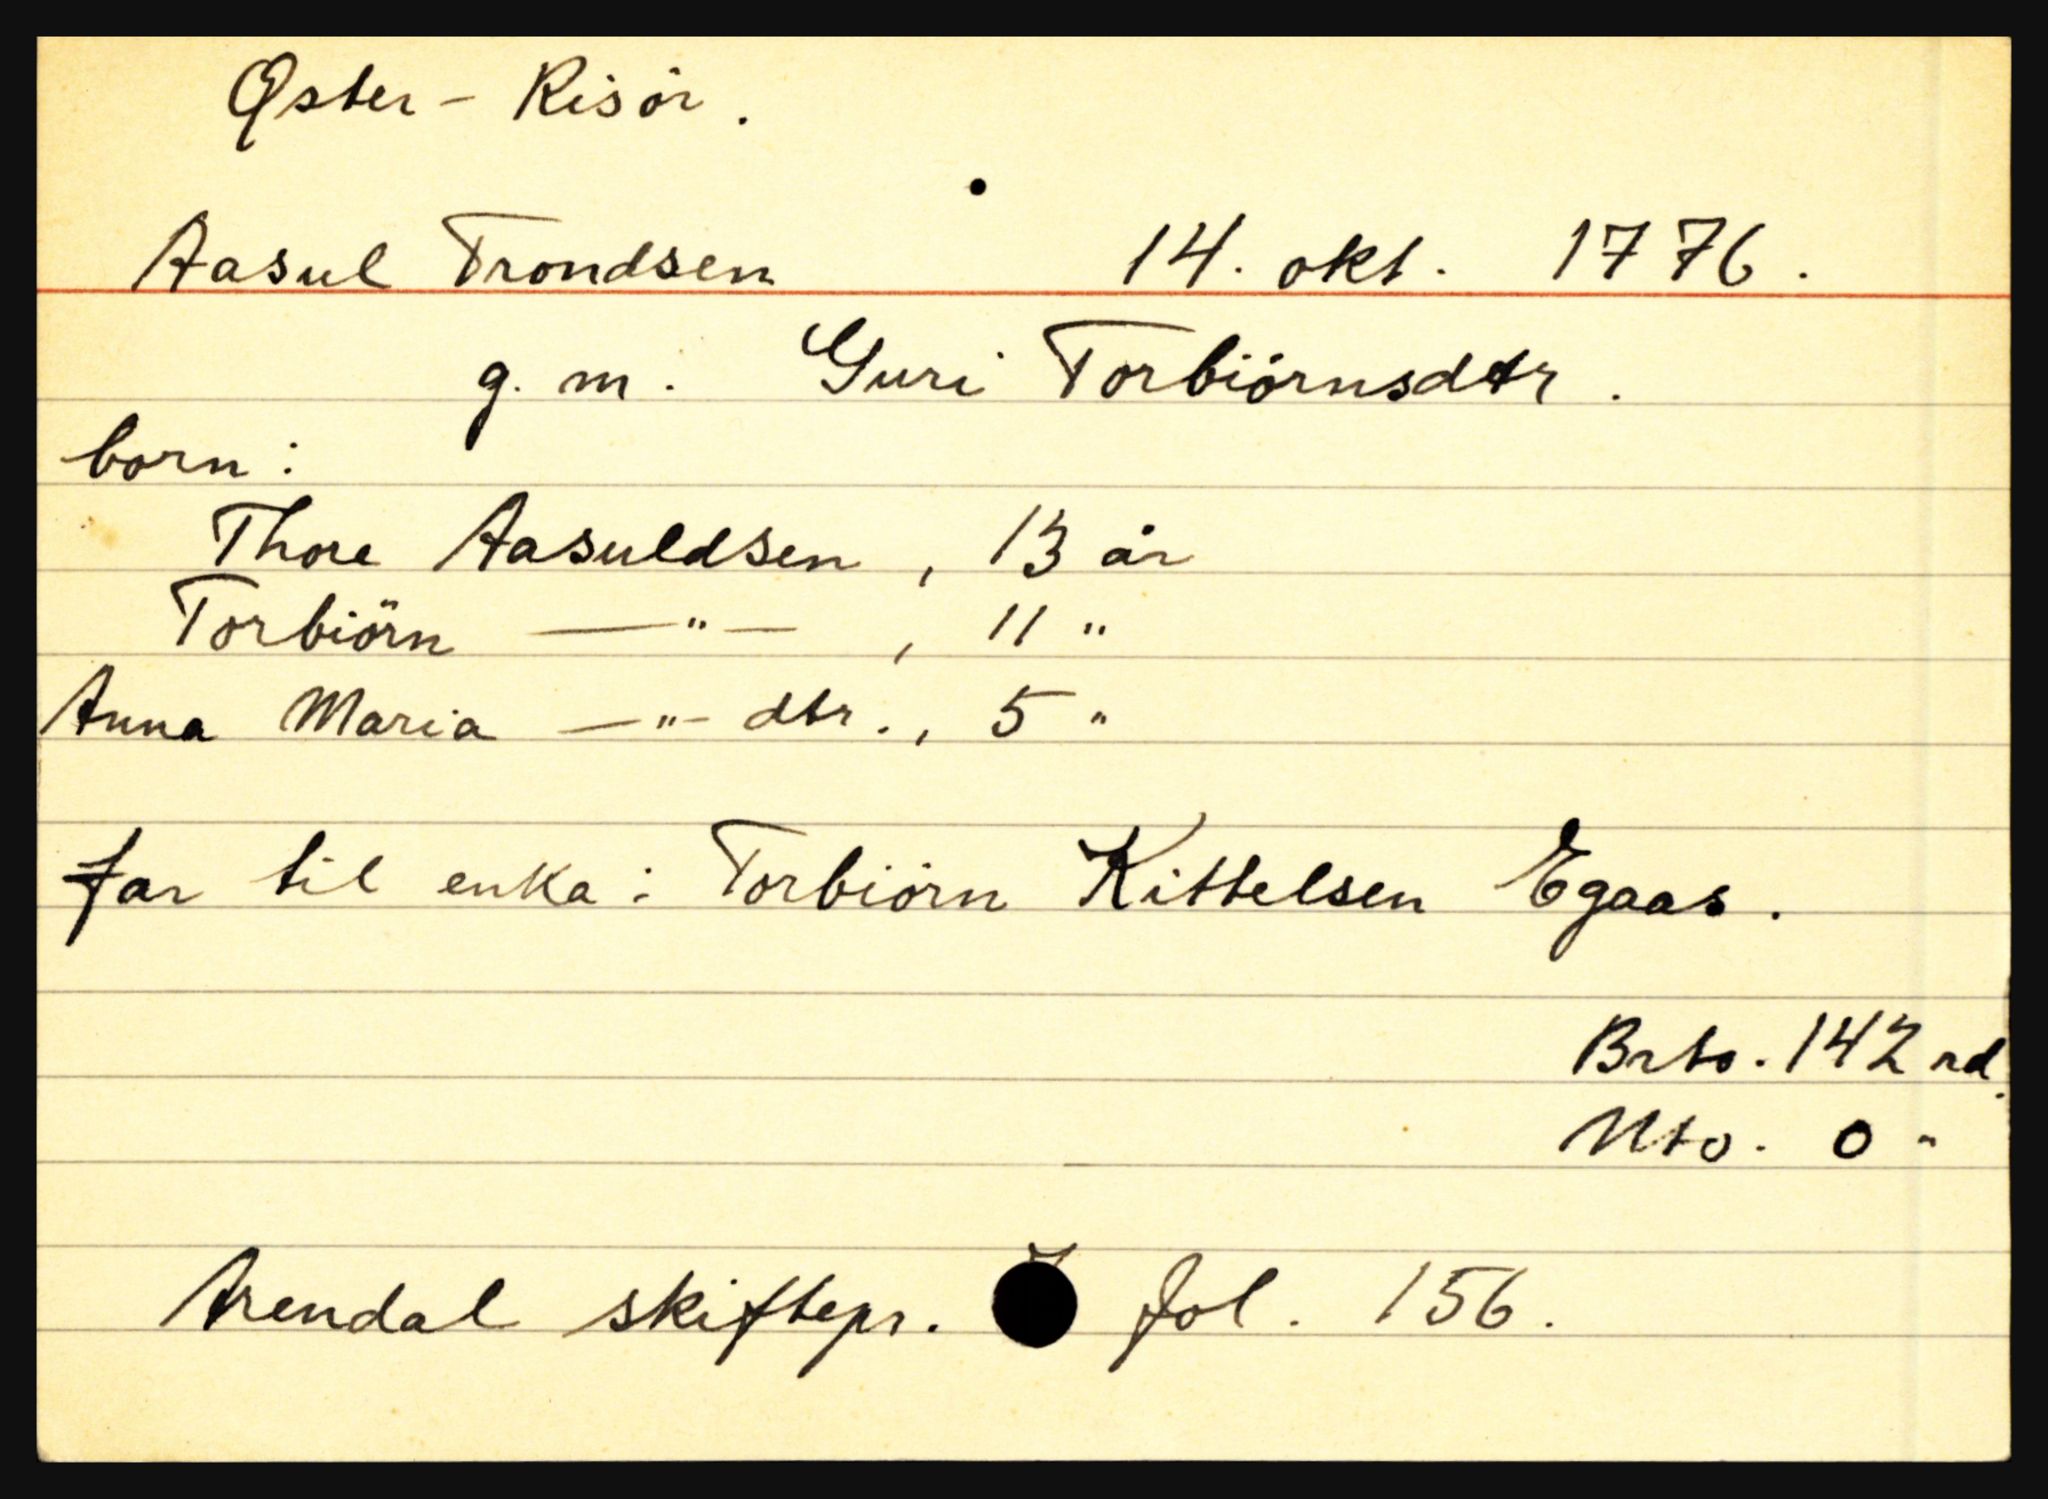 Øster - Risör.
Aasul Trondsen 14. okt. 1776.
g. m. Guri Torbiörnsdtr.
born:
Thore Aasuldsen, 13 år
Torbiörn —"—, 11 "
Anna Maria —"— dtr., 5 "
far til enka: Torbiörn Kittelsen Egaas.
Brto. 142 rd.
Nto. 0 "
Arendal skiftepr. fol. 156.